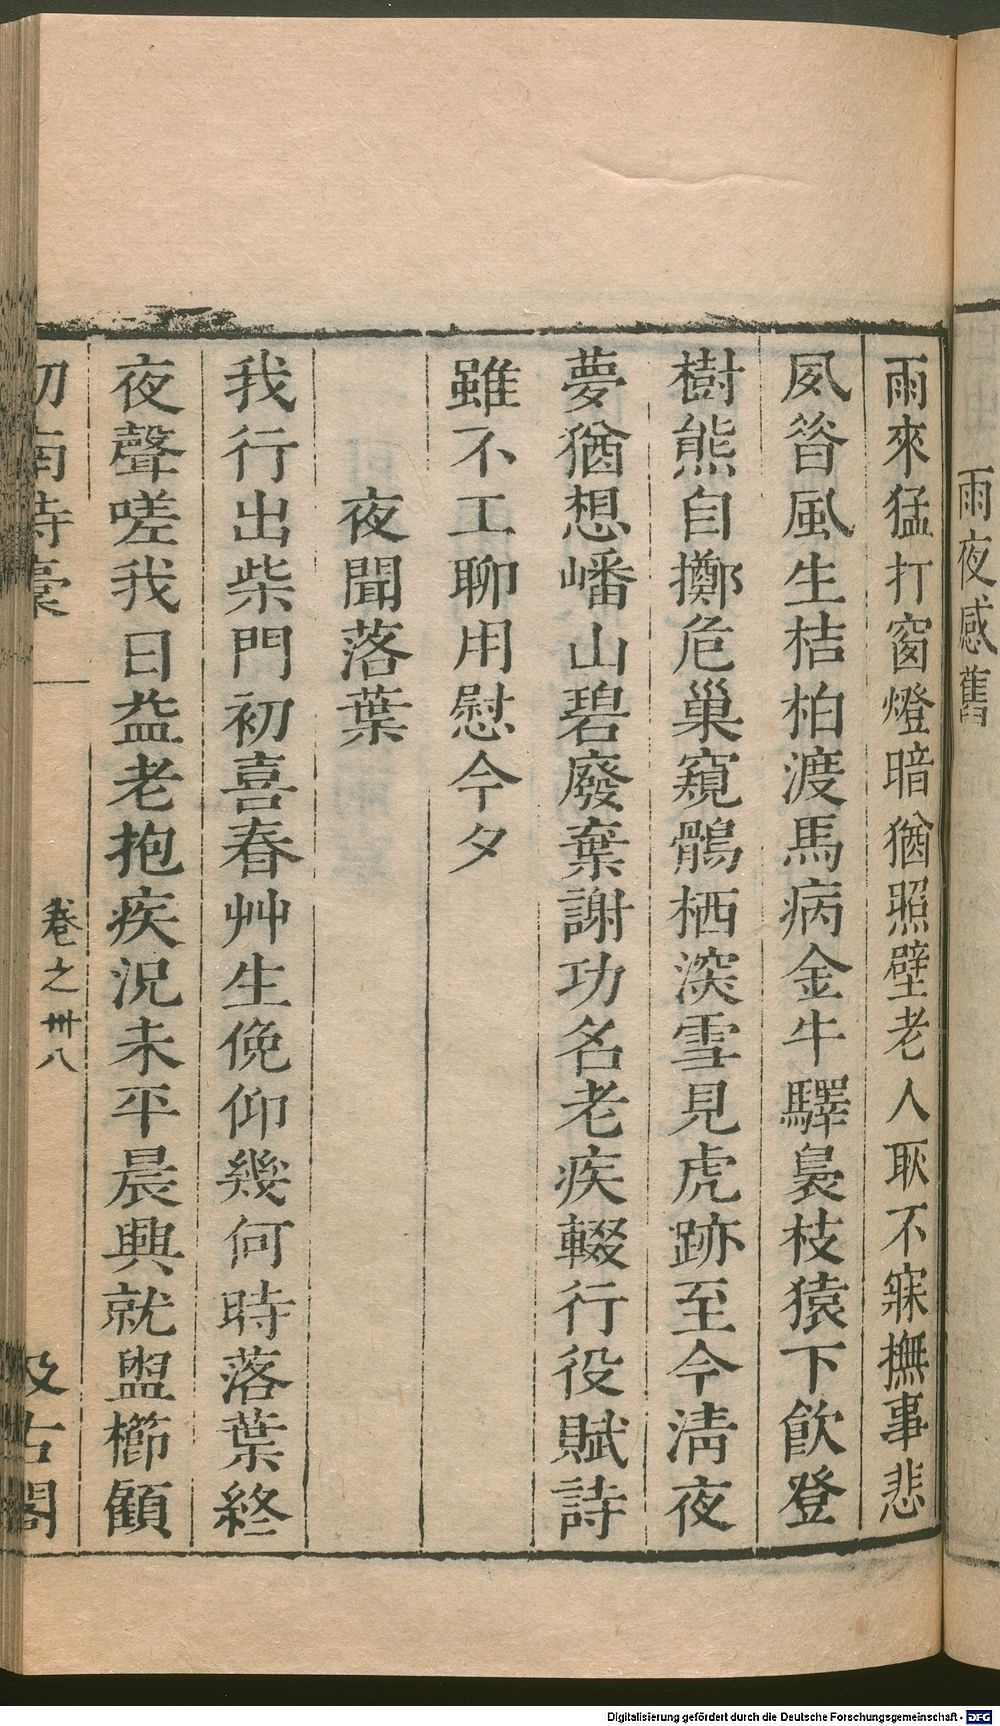 雨夜感舊
雨來猛打窗燈暗猶照壁老人耿不寐撫事悲
夙昔風生桔柏渡馬病金牛驛裊枝猿下飲登
樹熊自擲危巢窺鶻栖深雪見虎跡至今淸夜
夢猶想嶓山碧廢棄謝功名老疾輟行役賦詩
雖不工聊用慰今夕
夜聞落葉
我行出柴門初喜春艸生俛仰幾何時落葉終
夜聲嗟我日益老抱疾況未平晨興就盥櫛顧
劒南詩稾
卷之卅八
汲古閣
Digitalisierung gefördert durch die Deutsche Forschungsgemeinschaft - DFG